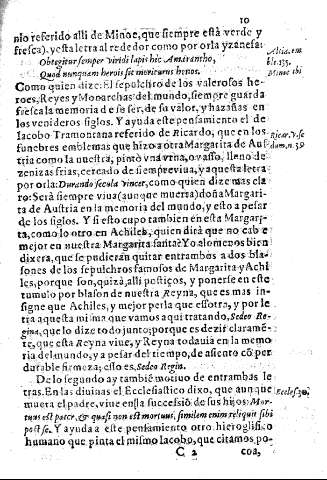 10
nio referido alli de Minoe, que siempre està verde y
fresca), y esta letra al rededor como por orla y zanefa:
Obtegitur semper viridi lapis hic Amarantho,
Quod nunquam herois sit moriturus honos.
Alcia. em
ble. 135.
Minoe ibi
Como quien dize: El sepulchro de los valerosos he-
roes, Reyes y Monarchas del mundo, siempre guarda
fresca la memoria de su ser, de su valor, y hazañas en
los venideros siglos. Y ayuda este pensamiento el de
Iacobo Tramontana referido de Ricardo, que en los
funebres emblemas que hizo a otra Margarita de Aus
tria como la nuestra, pintò vna vrna, o vasso, lleno de
zenizas frias, cercado de siempreviua, y aquesta letra
por orla: Durando secula vincet, como quien dize mas cla
ro: Serà siempre viua (aunque muerta) doña Margari-
ta de Austria en la memoria del mundo, y esto a pesar
de los siglos. Y si esto cupo tambien en esta Margari-
ta, como lo otro en Achiles, quien dirà que no cabe
mejor en nuestra Margarita santa? Yo alomenos bien
dixera, que se pudieran quitar entrambos a dos bla-
sones de los sepulchros famosos de Margarita y Achi
les, porque son, quizà, alli postiços, y ponerse en este
tumulo por blason de nuestra Reyna, que es mas in-
signe que Achiles, y mejor perla que essotra, y por le
tra aquesta mia que vamos aqui tratando, Sedeo Re-
gina, que lo dize todo junto; porque es dezir clarame-
te, que esta Reyna viue, y Reyna todauia en la memo
ria del mundo, y a pesar del tiempo, de asiento co per-
durable firmeza; esso es, Sedeo Regin.
De lo segundo ay tambie motiuo de entrambas le
tras. En las diuinas el Ecclesiastico dixo, que aunque
muera el padre, viue en la succesió de sus hijos: Mor-
tuus est pater, & quasi non est mortuus, similem enim reliquit sibi
post se. Y ayuda a este pensamiento otro hieroglifico
humano que pinta el mismo Iacobo, que citamos po-
Ricar. Vsse
dum. n. 59
Eccles. 30.
C 2 coa,